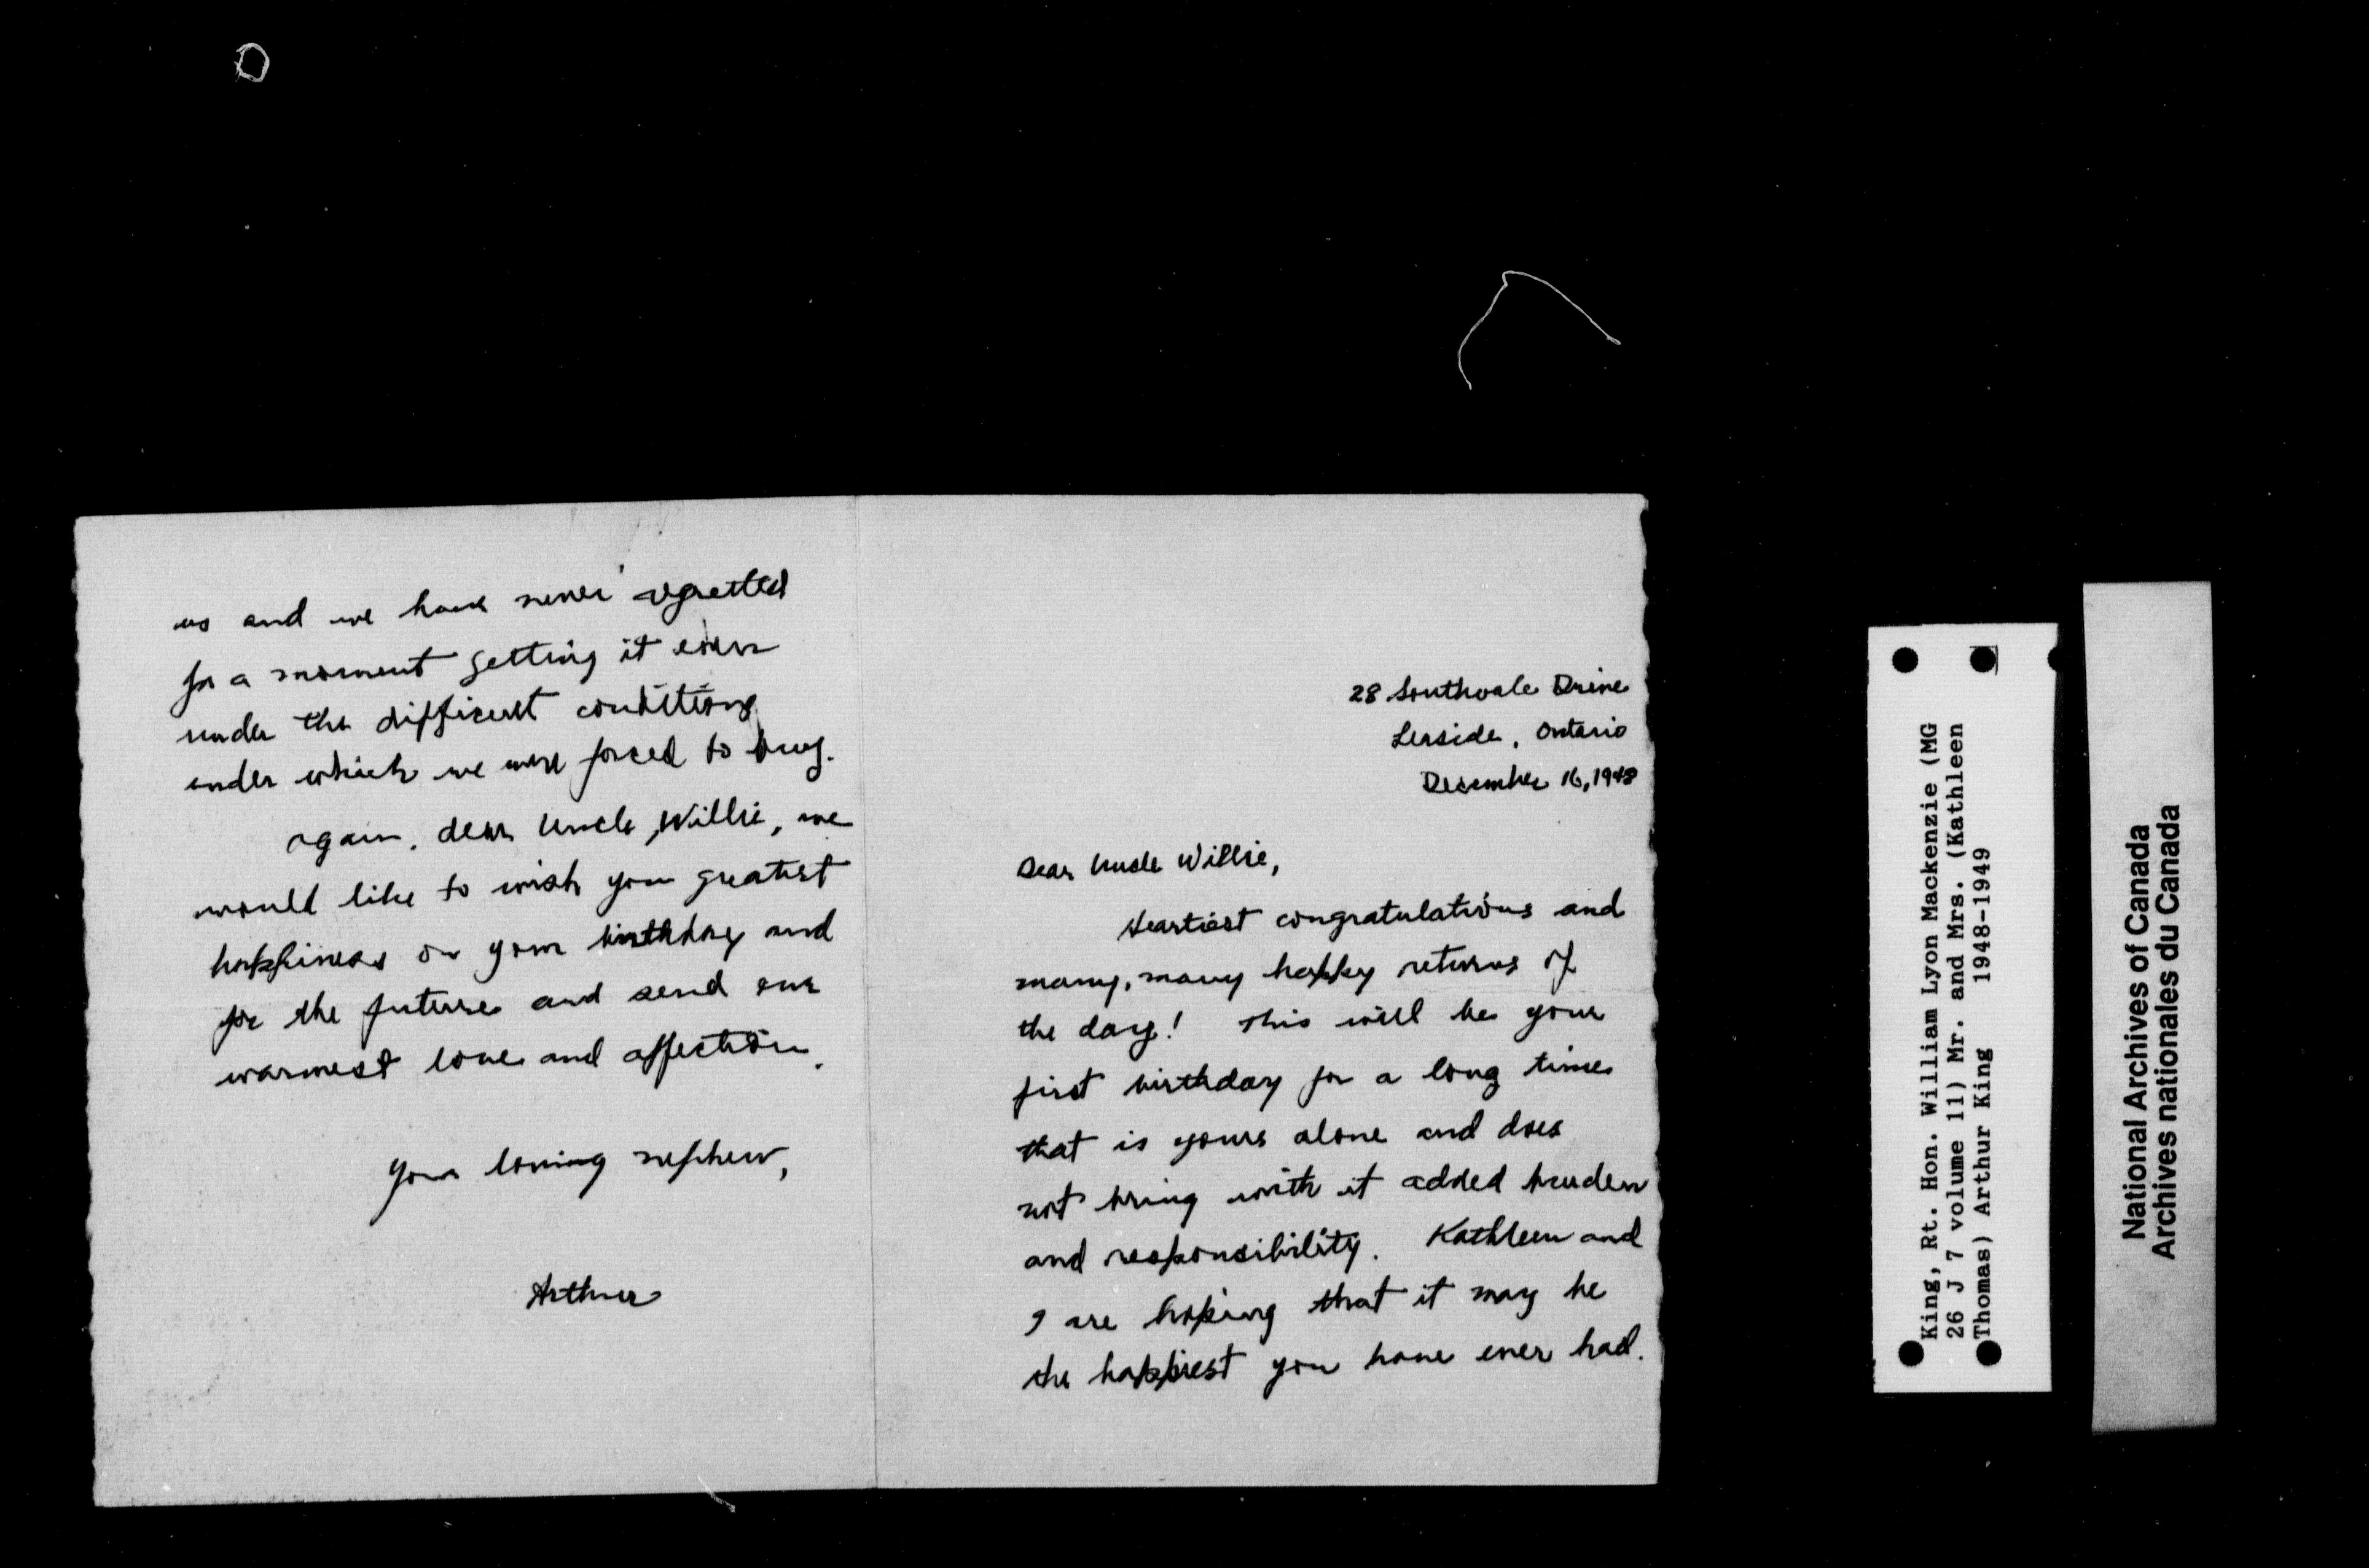 28 Southvale Drive
Leaside, Ontario
December 16, 1948
Dear Uncle Willie,
Heartiest congratulations and
many, many happy returns of
the day! This will be your
first birthday for a long time
that is yours alone and does
not bring with it added burden
and responsibility. Kathleen and
I are hoping that it may be
the happiest you have ever had.
us and we have never regretted
for a moment getting it even
under the difficult conditions
under which we were forced to buy.
Again, dear Uncle Willie, we
would like to wish you greatest
happiness on your birthday and
for the future and send our
warmest love and affection.
Your loving nephew,
Arthur
King, Rt. Hon. William Lyon Mackenzie (MG
26 J 7 volume 11) Mr. and Mrs. (Kathleen
Thomas) Arthur King 1948-1949
National Archives of Canada
Archives nationales du Canada